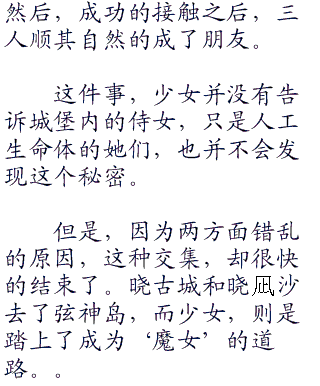 然后，成功的接触之后，三
人顺其自然的成了朋友。
这件事，少女并没有告
诉城堡内的侍女，只是人工
生命体的她们，也并不会发
现这个秘密。
但是，因为两方面错乱
的原因，这种交集，却很快
的结束了。晓古城和晓凪沙
去了弦神岛，而少女，则是
踏上了成为‘魔女’的道
路。。